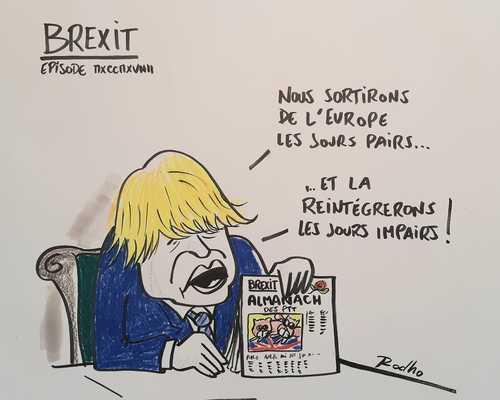 BREXIT
EPISODE
NOUS SORTIRONS
DE L'EUROPE
LES JOURS PAIRS...
...ET LA
REINTÉGRERONS
LES JOURS IMPAIRS !
BREXIT
ALMANACH
DES PTT
Rodho